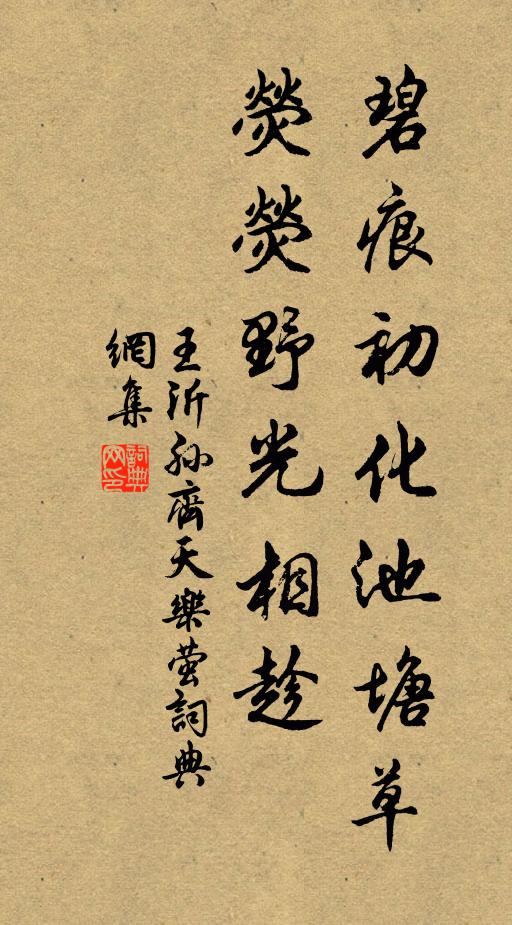 碧痕初化池塘草
熒熒野光相趁
王沂孙齊天樂萤詞典
網集
詞典网印